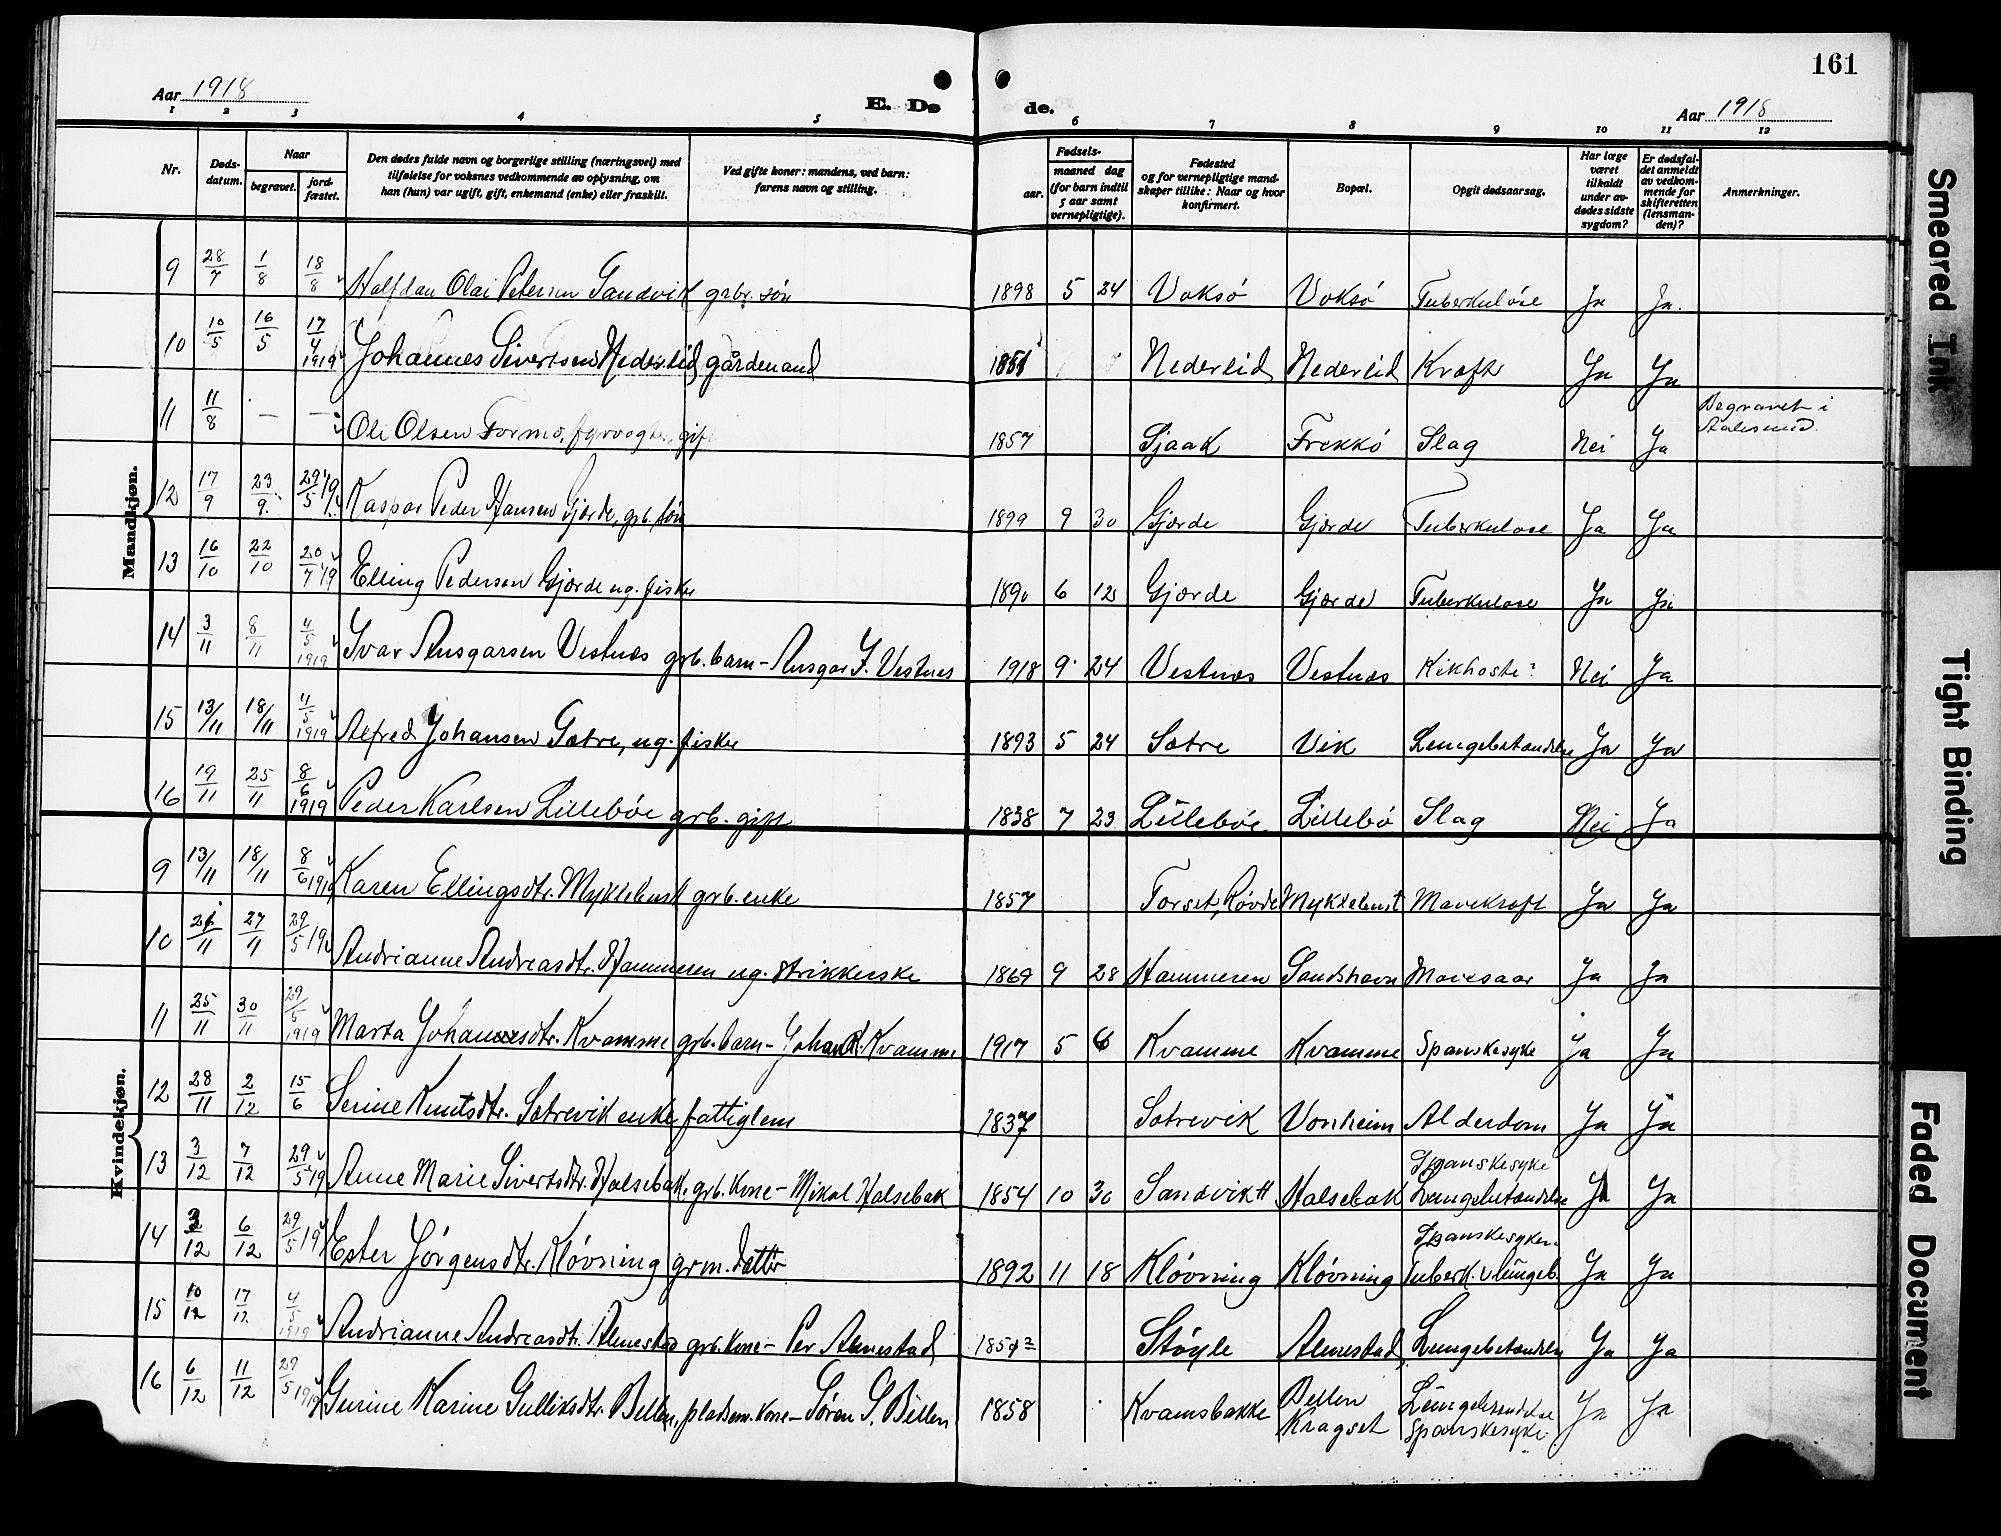 161
Aar 1918
E. Dø
de.
Aar 1918
1 2 3 4 5 6 7 8 9 10 11 12
Nr.
Døds-
datum.
Naar
begravet.
jord-
fæstet.
Den dødes fulde navn og borgerlige stilling (næringsvei) med
tilføielse for voksnes vedkommende av oplysning, om
han (hun) var ugift, gift, enkemand (enke) eller fraskilt.
Ved gifte koner: mandens, ved barn:
farens navn og stilling.
Fødsels-
aar.
maaned dag
(for barn indtil
5 aar samt
vernepligtige).
Fødested
og for vernepligtige mand-
skaper tillike: Naar og hvor
konfirmert.
Bopæl.
Opgit dødsaarsag.
Har læge
været
tilkaldt
under av-
dødes sidste
sygdom?
Er dødsfal-
det anmeldt
av vedkom-
mende for
skifteretten
(lensman-
den)?
Anmerkninger.
Mandkjøn.
9 28/7 1/8 18/8 Halfdan Olai Petersen Sandvik grbr. søn 1898 5 24 Voksø Voksø Tuberkuløse Ja Ja.
10 10/5 16/5 17/4 1919 Johannes Sivertsen Nederlid gårdmand 1851 Nederlid Nederlid Kræft Ja Ja
11 11/8 — — Ole Olsen Formo, fyrvogter, gift 1857 Sjaak Frekkø Slag Nei Ja Begravet i
Aalesund.
12 17/9 23/9. 29/5 19 Kaspar Peder Hansen Gjærde, grb. søn 1899 9 30 Gjærde Gjærde Tuberkulose Ja Ja
13 16/10 22/10 20/7 19 Elling Pedersen Gjærde ug. fisker 1890 6 12 Gjærde Gjærde Tuberkulose Ja Ja
14 3/11 8/11 4/5 1919 Ivar Ansgarsen Vestnæs grb. barn – Ansgar I. Vestnes 1918 9 24 Vestnæs Vestnæs Kikhoste? Nei Ja
15 13/11 18/11 4/5 1919 Alfred Johansen Sætre, ug. fisker 1893 5 24 Sætre Vik Lungebetændelse Ja Ja
16 19/11 25/11 8/6 1919 Peder Karlsen Lillebøe grb. gift 1838 7 23 Lillebøe Lillebø Slag Nei Ja
Kvindekjøn.
9 13/11 18/11 8/6 1919 Karen Ellingsdtr. Myklebust grb. enke 1857 Torset, Røvde Myklebust Mavekræft Ja Ja
10 21/11 27/11 29/5 19 Andrianne Andreasdtr. Hammeren ug. strikkerske 1869 9 28 Hammeren Sandshavn Mavesaar Ja Ja
11 25/11 30/11 29/5 1919 Marta Johannesdtr. Kvamme grb. barn – Johan R. Kvamme 1917 5 6 Kvamme Kvamme Spanskesyke Ja Ja
12 28/11 2/12 15/6 Serine Knutsdtr. Sætrevik enke fattiglem 1837 Sætrevik Vonheim Alderdom Ja Ja
13 3/12 7/12 29/5 19 Anne Marie Sivertsdtr. Halsebak, grb. kone – Mikal Halsebak 1854 10 30 Sandvik H Halsebak Spanskesyke
Lungebetændelse Ja Ja
14 3/12 6/12 29/5 19 Ester Jörgensdtr. Kløvning grm. datter 1892 11 18 Kløvning Kløvning Spanskesyken.
Tuberk. v lungeb. Ja Ja
15 10/12 17/12 4/5 1919 Andrianne Andreasdtr. Almestad grb. kone – Per Almestad 1854? Støyle Almestad, Lungebetændelse Ja Ja
16 6/12 11/12 29/5 1919 Gurine Karine Gulliksdtr. Bellen, pladsem. kone – Søren S. Bellen 1858 Kvamsbakke Bellen
Kragset Lungebetændelse
Spanskesyke. Ja Ja
Smeared Ink
Tight Binding
Faded Document